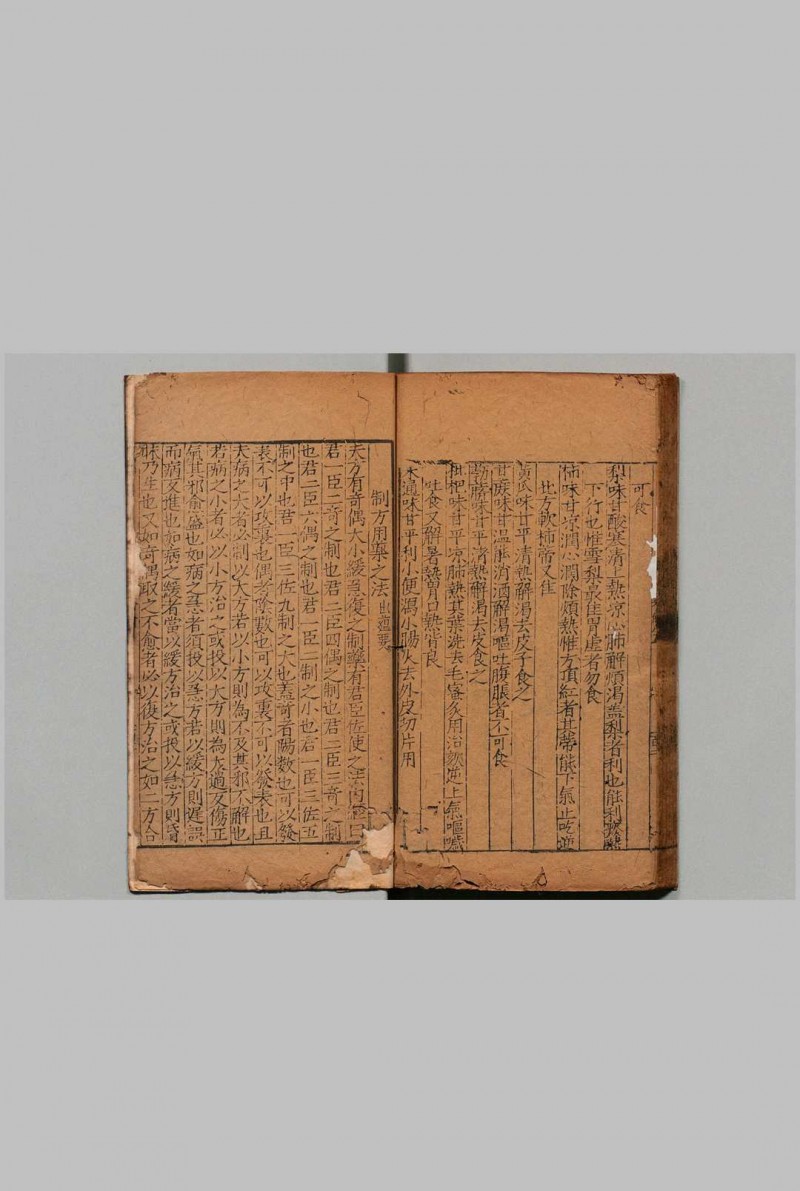 可食
梨味甘酸寒清上熱凉心肺解煩渴盖梨者利也能利
下行也惟雪梨最佳胃虛者勿食
柿味甘凉潤心潤除煩熱惟方頂紅者其蒂能下氣止咳逆
北方軟柿蒂又佳
黄瓜味甘平清熱解渴去皮子食之
甘蔗味甘温能消酒解渴嘔吐腹脹者不可食
葧薺味甘平清熱解渴去皮食之
枇杷味甘平凉肺熱其葉洗去毛蜜炙用治欬逆上氣嘔噦
吐食又解暑熱胃口熱皆良
木通味甘平利小便瀉小腸火去外皮切片用
制方用藥之法 出蘊要
夫方有奇偶大小緩急復之制藥有君臣佐使之法内經曰
君一臣二奇之制也君二臣四偶之制也君二臣三奇之制
也君二臣六偶之制也君一臣二制之小也君一臣三佐五
制之中也君一臣三佐九制之大也蓋奇者陽數也可以發
表不可以攻裏也偶者陰數也可以攻裏不可以發表也且
夫病之大者必制以大方若以小方則為不及其邪不解也
若病之小者必以小方治之或投以大方則為太過反傷正
氣其邪俞盛也如病之急者須投以急方若以緩方則遲誤
而病反進也如病之緩者當以緩方治之或投以急方則
乃生也又如奇偶取之不愈者必以復方治之如二方合